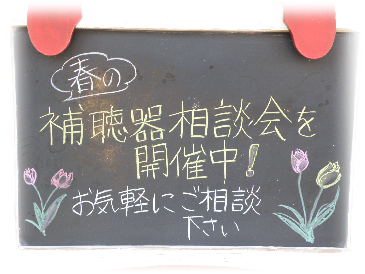 春の
補聴器相談会を
開催中!
お気軽にご相談
下さい